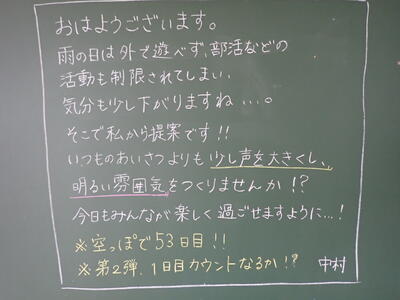 おはようございます。
雨の日は外で遊べず、部活などの
活動も制限されてしまい、
気分も少し下がりますね...。
そこで私から提案です!!
いつものあいさつよりも少し声を大きくし、
明るい雰囲気をつくりませんか!?
今日もみんなが楽しく過ごせますように...!
※空っぽで53日目!!
※第2弾、1日目カウントなるか!? 中村